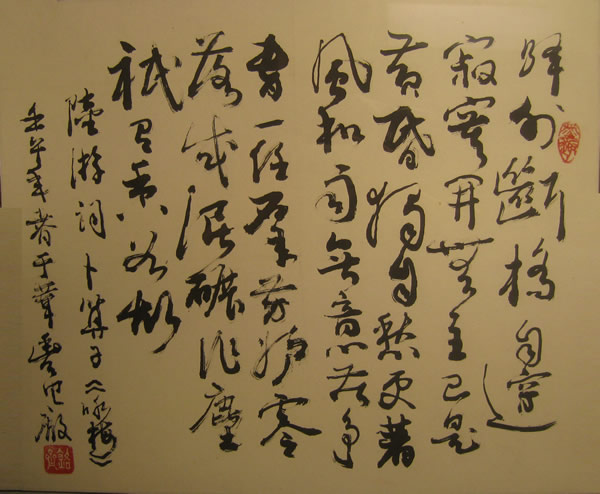 驛外斷橋邊
寂寞開無主已是
黃昏獨自愁更著
風和雨無意苦爭
春一任羣芳妒零
落成泥碾作塵
祇有香如故
陸游詞卜算子《咏梅》
壬午年春于